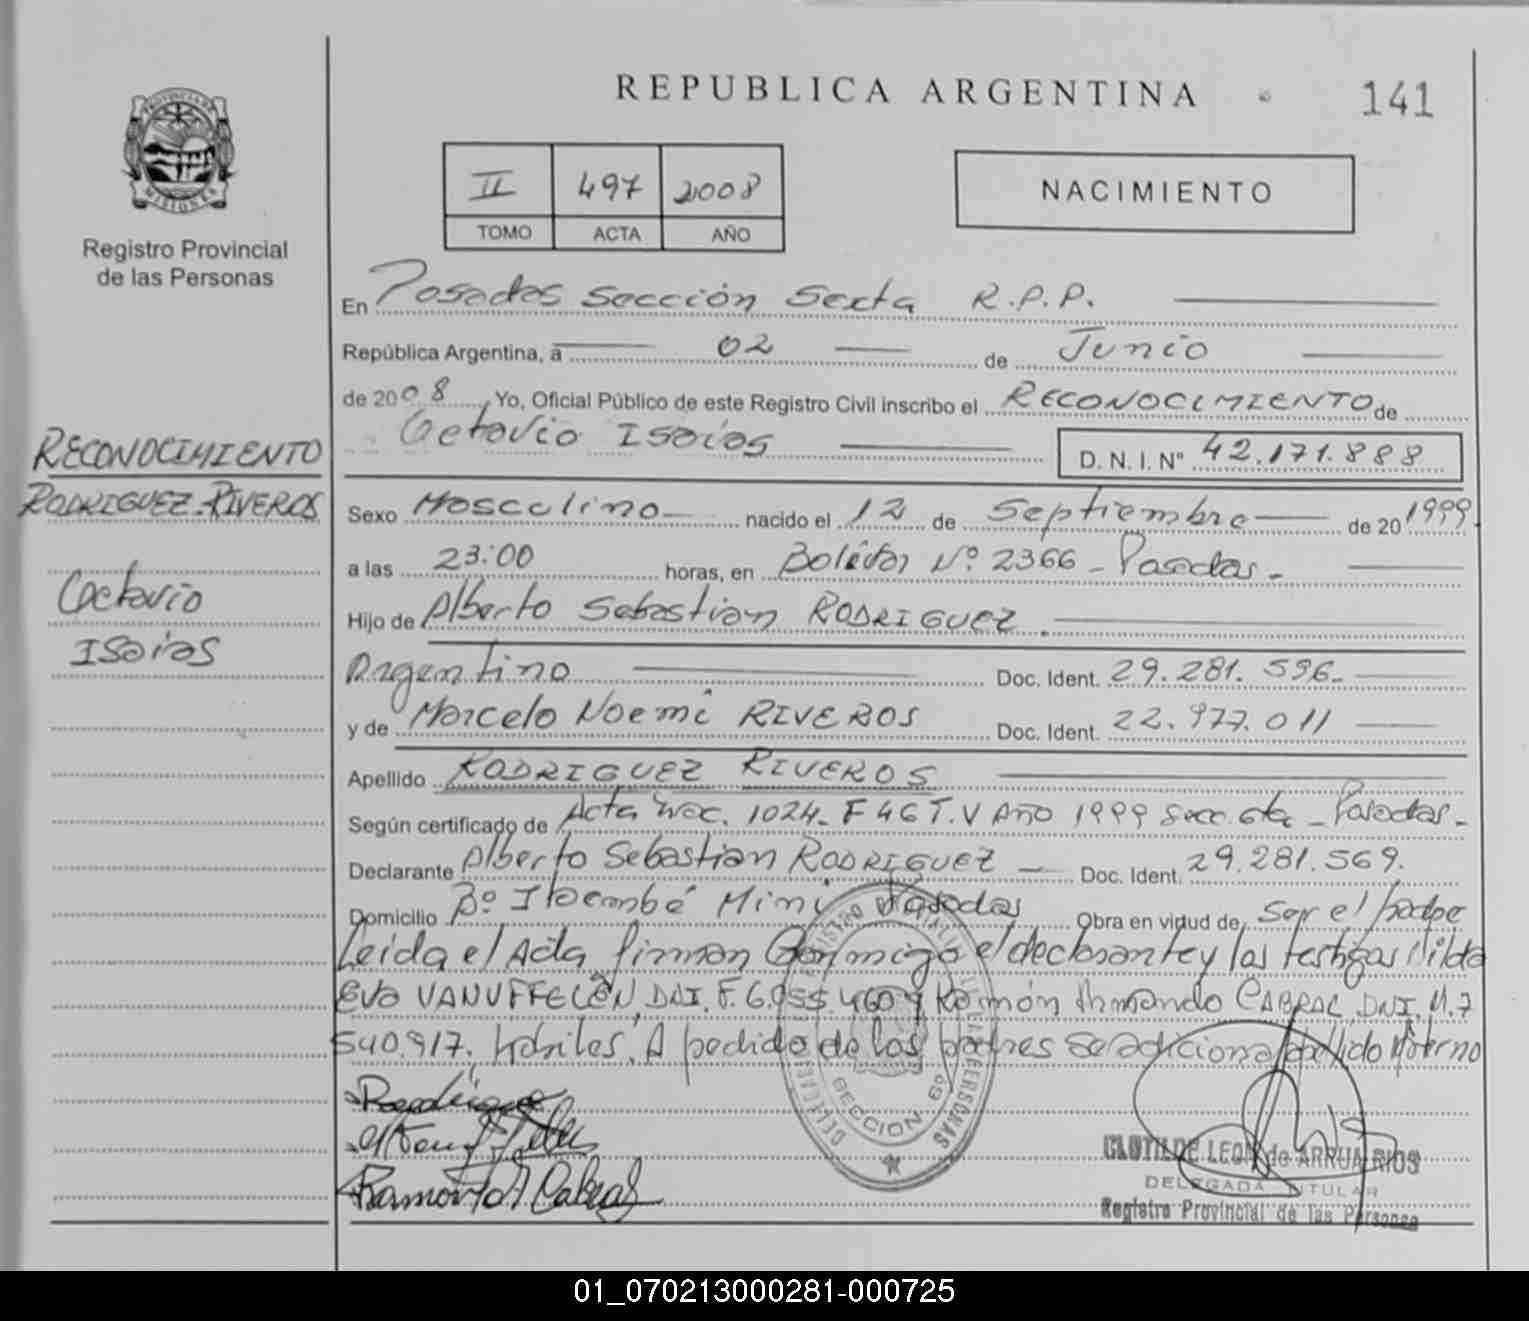 REPUBLICA ARGENTINA
141
PROVINCIA DE
MISIONES
Registro Provincial
de las Personas
II 497 2008
TOMO ACTA AÑO
NACIMIENTO
En Posadas Sección Sexta R.P.P.
República Argentina, a 02 de Junio
de 2008 Yo, Oficial Público de este Registro Civil inscribo el RECONOCIMIENTO de
Octavio Isaías D. N. I. Nº 42.171.888
RECONOCIMIENTO
RODRIGUEZ-RIVEROS
Octavio
Isaías
Sexo Masculino nacido el 12 de Septiembre de 20 1999
a las 23:00 horas, en Bolívar Nº 2366 - Posadas -
Hijo de Alberto Sebastian RODRIGUEZ.
Argentino Doc. Ident. 29.281.596-
y de Marcela Noemí RIVEROS Doc. Ident. 22.977.011
Apellido RODRIGUEZ RIVEROS
Según certificado de Acta Nac. 1024- F 46 T. V Año 1999 Secc. 6ta - Posadas -
Declarante Alberto Sebastian RODRIGUEZ - Doc. Ident. 29.281.569.
Domicilio Bº Itaembé Miní Posadas Obra en virtud de Ser el padre
Leída el Acta firman Conmigo el declarante y las testigas Nilda
Eva DNI. F. 6.055.460 y Ramón Armando CABRAL, DNI. M. 7
540.917. habiles. A pedido de los padres se adiciona apellido Materno
Ramon A Cabral
SECCION 6º
CLOTILDE LEON de ARRUA RIOS
DELEGADA TITULAR
Registro Provincial de las Personas
01_070213000281-000725